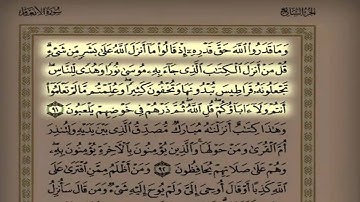 الجزء السابع
سورة الأنعام
وَمَا قَدَرُوا۟ ٱللَّهَ حَقَّ قَدْرِهِۦٓ إِذْ قَالُوا۟ مَآ أَنزَلَ ٱللَّهُ عَلَىٰ بَشَرٍ مِّن شَىْءٍ
قُلْ مَنْ أَنزَلَ ٱلْكِتَٰبَ ٱلَّذِى جَآءَ بِهِۦ مُوسَىٰ نُورًا وَهُدًى لِّلنَّاسِ
تَجْعَلُونَهُۥ قَرَاطِيسَ تُبْدُونَهَا وَتُخْفُونَ كَثِيرًا وَعُلِّمْتُم مَّا لَمْ تَعْلَمُوٓا۟
أَنتُمْ وَلَآ ءَابَآؤُكُمْ قُلِ ٱللَّهُ ثُمَّ ذَرْهُمْ فِى خَوْضِهِمْ يَلْعَبُونَ ٩١
وَهَٰذَا كِتَٰبٌ أَنزَلْنَٰهُ مُبَارَكٌ مُّصَدِّقُ ٱلَّذِى بَيْنَ يَدَيْهِ وَلِتُنذِرَ
أُمَّ ٱلْقُرَىٰ وَمَنْ حَوْلَهَا وَٱلَّذِينَ يُؤْمِنُونَ بِٱلْءَاخِرَةِ يُؤْمِنُونَ بِهِۦ
وَهُمْ عَلَىٰ صَلَاتِهِمْ يُحَافِظُونَ ٩٢ وَمَنْ أَظْلَمُ مِمَّنِ ٱفْتَرَىٰ عَلَى
ٱللَّهِ كَذِبًا أَوْ قَالَ أُوحِىَ إِلَىَّ وَلَمْ يُوحَ إِلَيْهِ شَىْءٌ وَمَن قَالَ سَأُنزِلُ